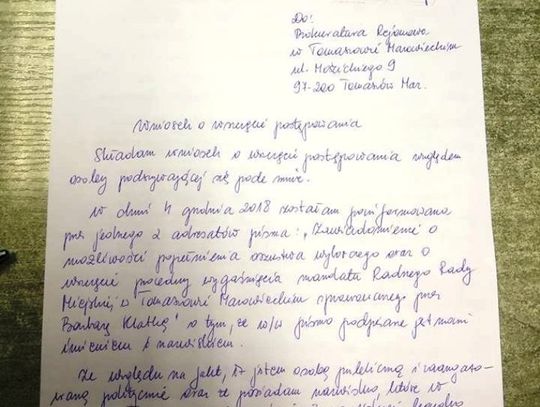 Do:
Prokuratura Rejonowa
w Tomaszowie Mazowieckim
ul. Mościckiego 9
97-200 Tomaszów Maz.
Wniosek o wszczęcie postępowania
Składam wniosek o wszczęcie postępowania względem
osoby podszywającej się pode mnie.
W dniu 4 grudnia 2018 zostałam poinformowana
przez jednego z adresatów pisma: „Zawiadomienie o
możliwości popełnienia oszustwa wyborczego oraz o
wszczęcie procedury wygaśnięcia mandatu Radnego Rady
Miejskiej w Tomaszowie Mazowieckim sprawowanego przez
Barbarę Klatkę" o tym, że w/w pismo podpisane jest moim
imieniem i nazwiskiem.
Ze względu na fakt, iż jestem osobą publiczną i zaangażo-
waną politycznie oraz że posiadam nazwisko, które w